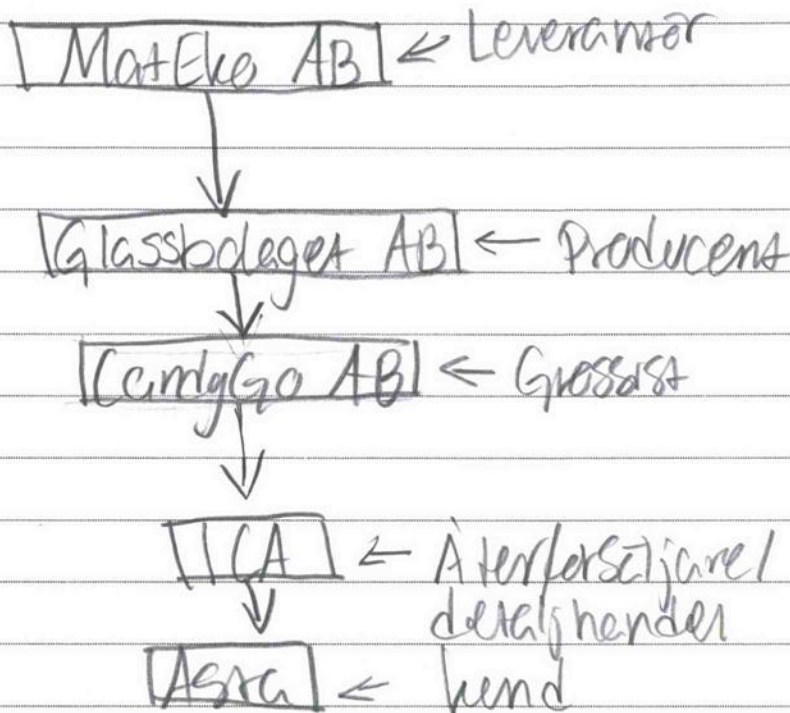 MatEko AB ← Leverantör
Glassbolaget AB ← Producent
CandyGo AB ← Grossist
ICA ← Återförsäljare/
detaljhandel
Asta ← kund